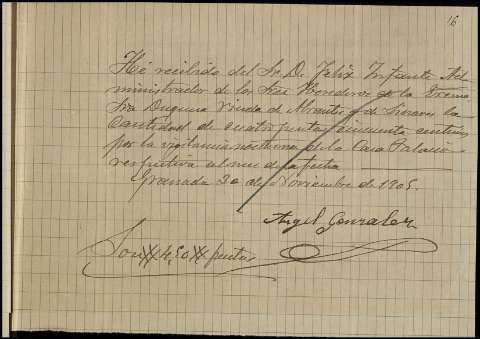 16
Hé recibido del Sr. D. Felix Infante Ad-
ministrador de los Sres Herederos de la Exema
Sra Duquesa Viuda de Abrantes y de Linares la
Cantidad de cuatro pesetas cincuenta centimos
por la vigilancia nocturna de la Casa Palacio
respectiva al mes de la fecha
Granada 30 de Noviembre de 1905.
Angel Gonzalez
Son # 4,50 # pesetas